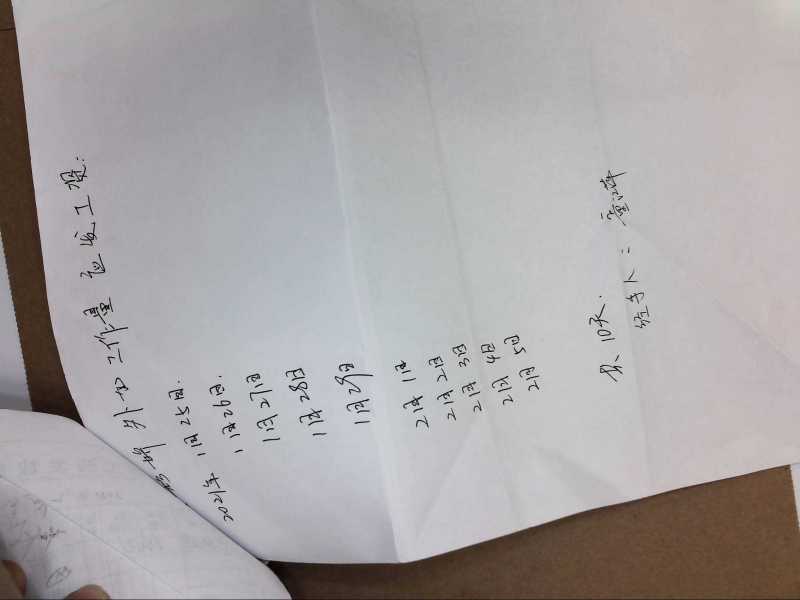 外加工作量应发工资:
1月25日.
2021年 1月26日.
1月27日
1月28日
1月29日
2月1日
2月2日
2月3日
2月4日
2月5日
共、10天.
经手人: